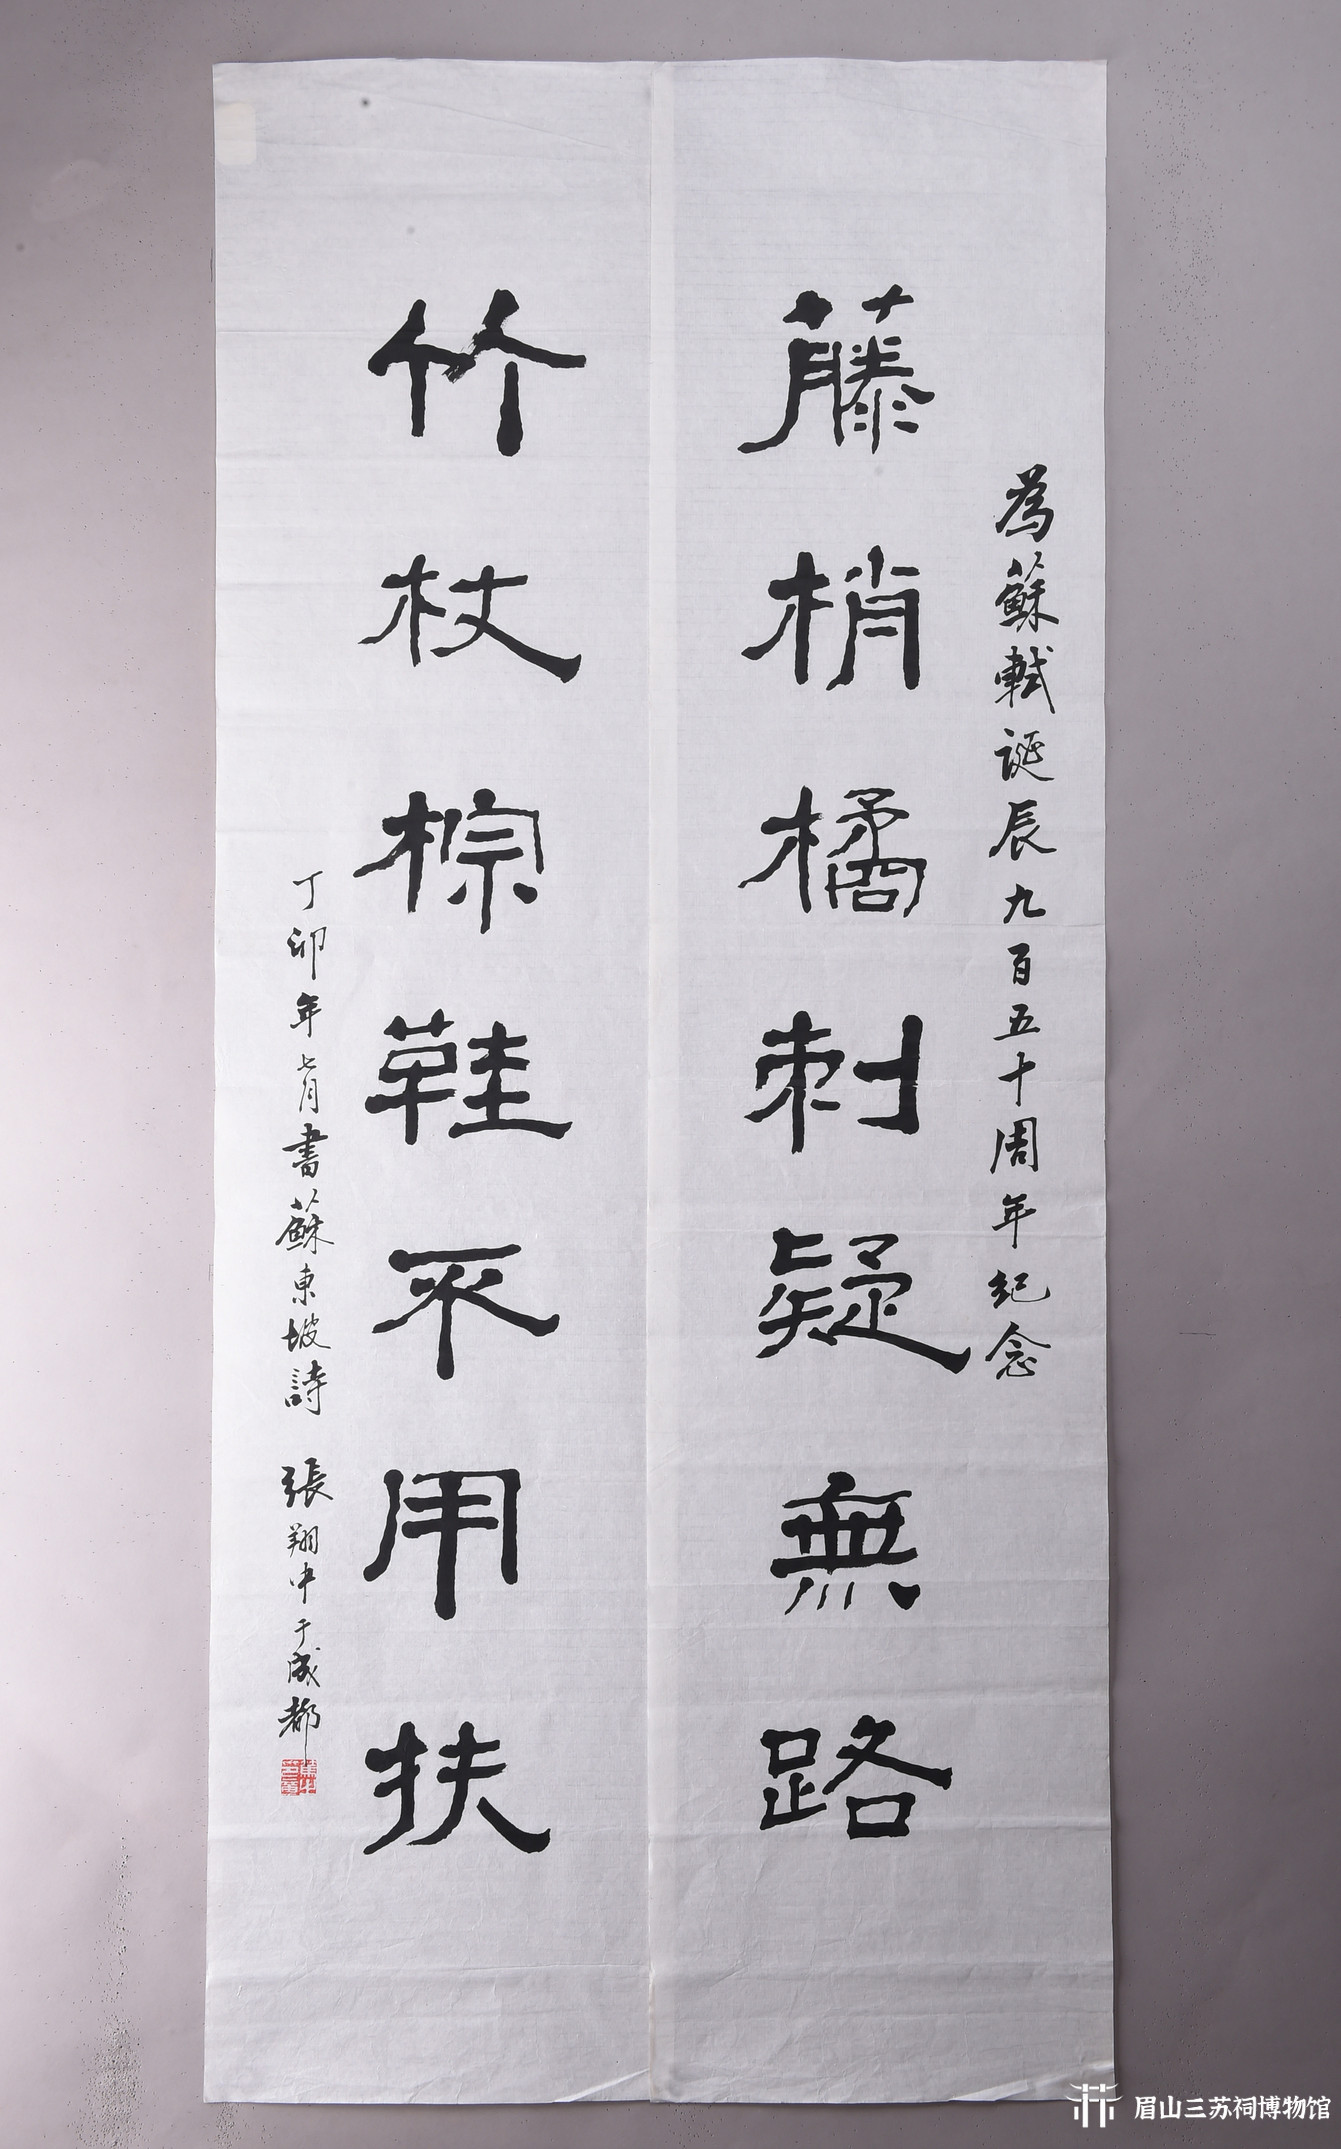 為蘇軾誕辰九百五十周年紀念
藤梢橘刺疑無路
竹杖棕鞋不用扶
丁卯年七月書蘇東坡詩 張翔中于成都
眉山三苏祠博物馆